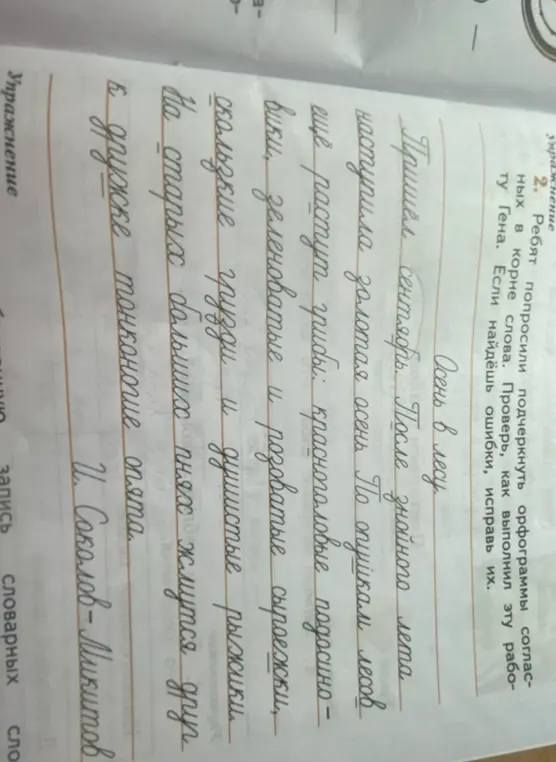 Упражнение
2. Ребят попросили подчеркнуть орфограммы соглас-
ных в корне слова. Проверь, как выполнил эту рабо-
ту Гена. Если найдёшь ошибки, исправь их.
Осень в лесу
Пришел сентябрь. После знойного лета
наступила золотая осень. По опушкам лесов
ещё растут грибы: красноголовые подосино-
вики, зеленоватые и розоватые сыроежки,
скользкие грузди и душистые рыжики.
На старых больших пнях жмутся друг
к дружке тонконогие опята.
И. Соколов-Микитов
Упражнение
запись словарных сло